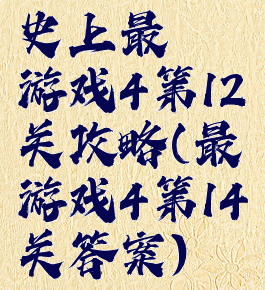 史上最
游戏4第12
关攻略(最
游戏4第14
关答案)